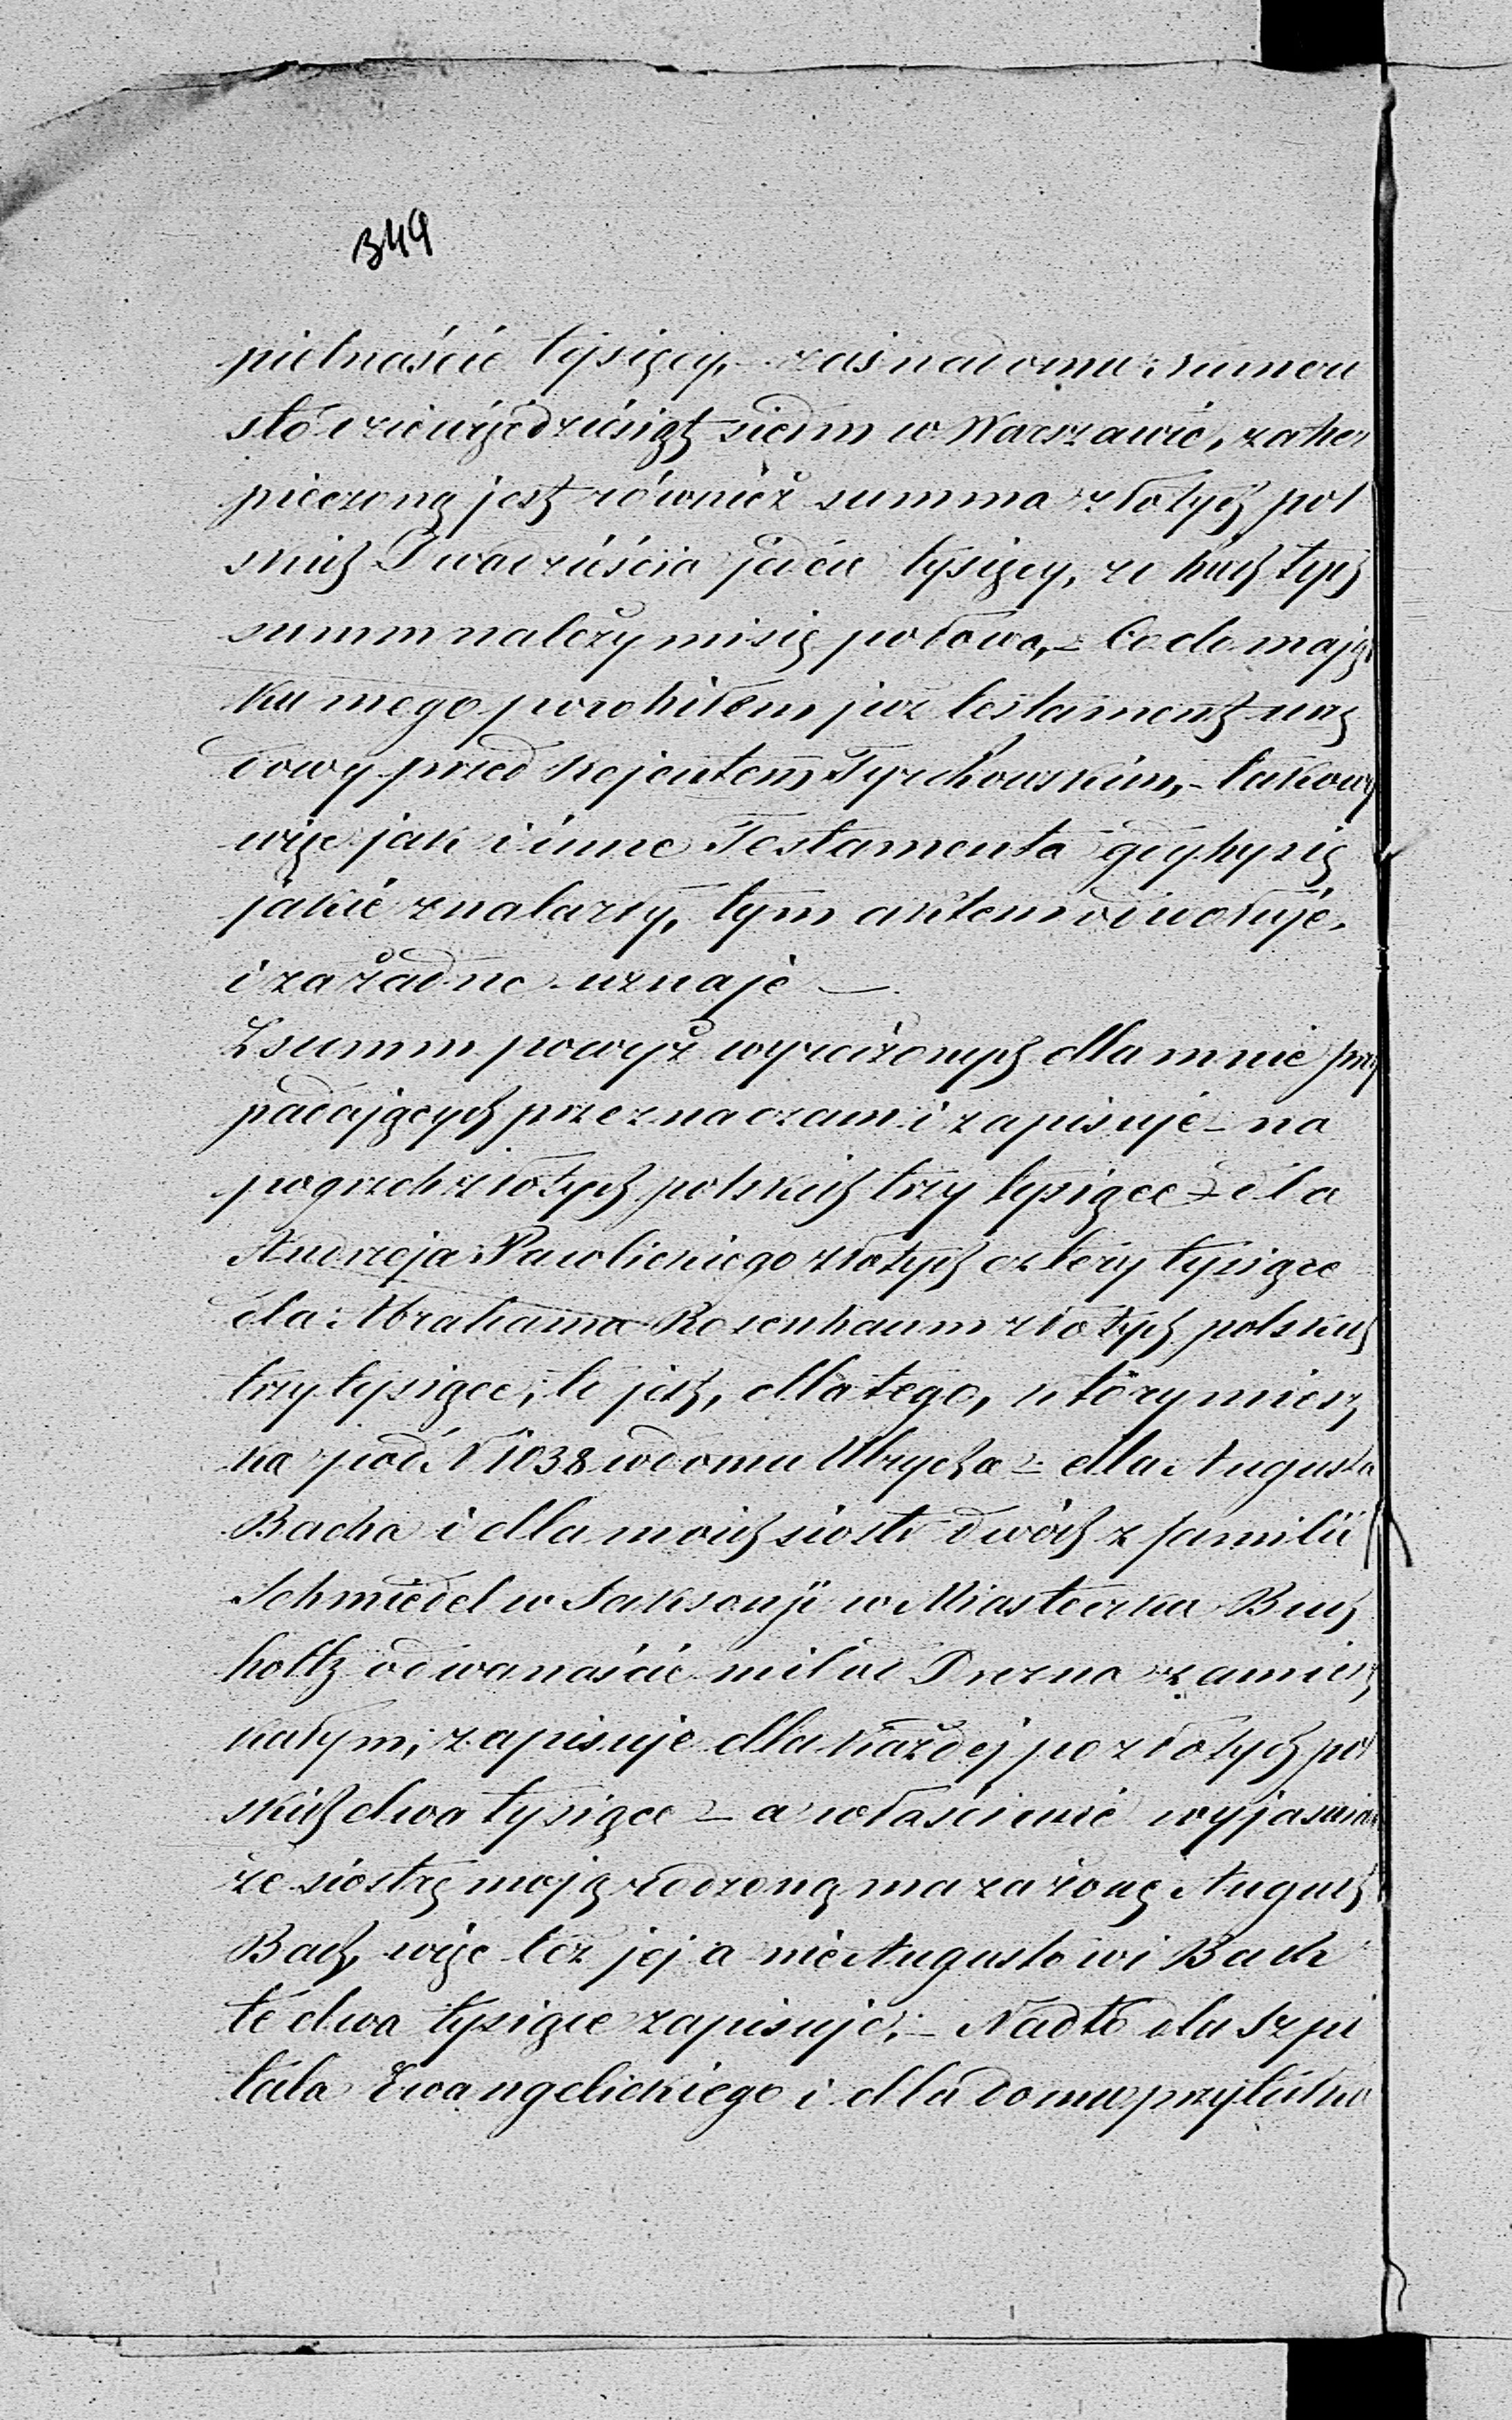 349
pietnaście tysięcy, – zaś na domu Numeru
sto dziewięćdziesiąt siedm w Warszawie, zabez
pieczoną jest również summa złotych pol
skich Dwadzieścia jeden tysięcy, z obuch tych
summ należy mi się połowa, – Co do mają
ku mego porobiłem już testament urzę
dowy przed Rejentem Tyrchowskim, – takowy
więc jak i inne Testamenta gdyby się
jakie znalazły, tym aktem odwołuję,
i za żadne uznaję –
Z summ powyż wyrażonych dla mnie przy
padających przeznaczam i zapisuję – na
pogrzeb złotych polskich trzy tysiące – dla
Andrzeja Pawlickiego złotych cztery tysiące
dla Abrahama Rosenbaum złotych polskich
trzy tysiące, to jest, dla tego, który miesz
ka pod N 1038 w domu Ulrycha – dla Augusta
Bacha i dla moich siostr dwóch z familii
Schmiedel w Saksonji w Miasteczku Buch
holtz o dwanaście mil od Drezna zamiesz
kałym, zapisuję dla każdej po złotych pol
skich dwa tysiące – a właściwie wyjaśniam
że siostrę moją rodzoną ma za żonę August
Bach, więc też jej a nie Augustowi Bach
te dwa tysiące zapisuję, – Nadto dla Szpi
tala Ewangelickiego i dla domu przytułku